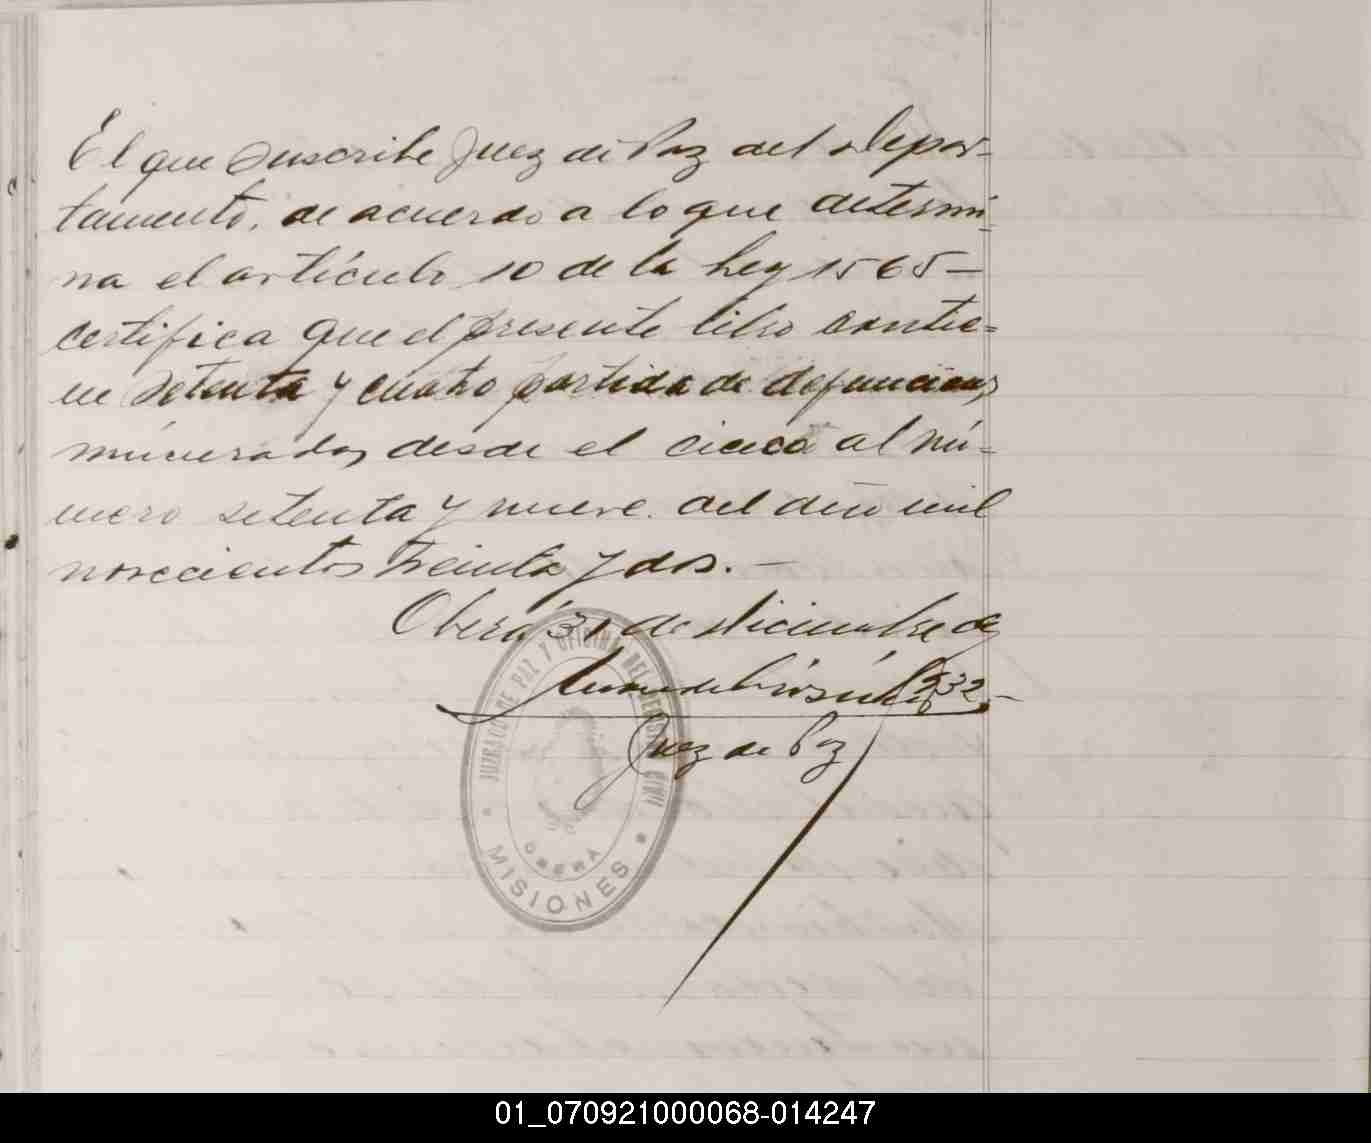 El que suscribe Juez de Paz del Depar-
tamento, de acuerdo a lo que determi-
na el artículo 10 de la Ley 1565 —
certifica que el presente libro contie-
ne setenta y cuatro partida de defunciones
númerados desde el cinco al nú-
mero setenta y nueve. del año mil
novecientos treinta y dos. —
Oberá 31 de diciembre de
932.-
Juez de Paz
JUZGADO DE PAZ Y OFICINA DEL REGISTRO CIVIL
OBERÁ
* MISIONES *
01_070921000068-014247